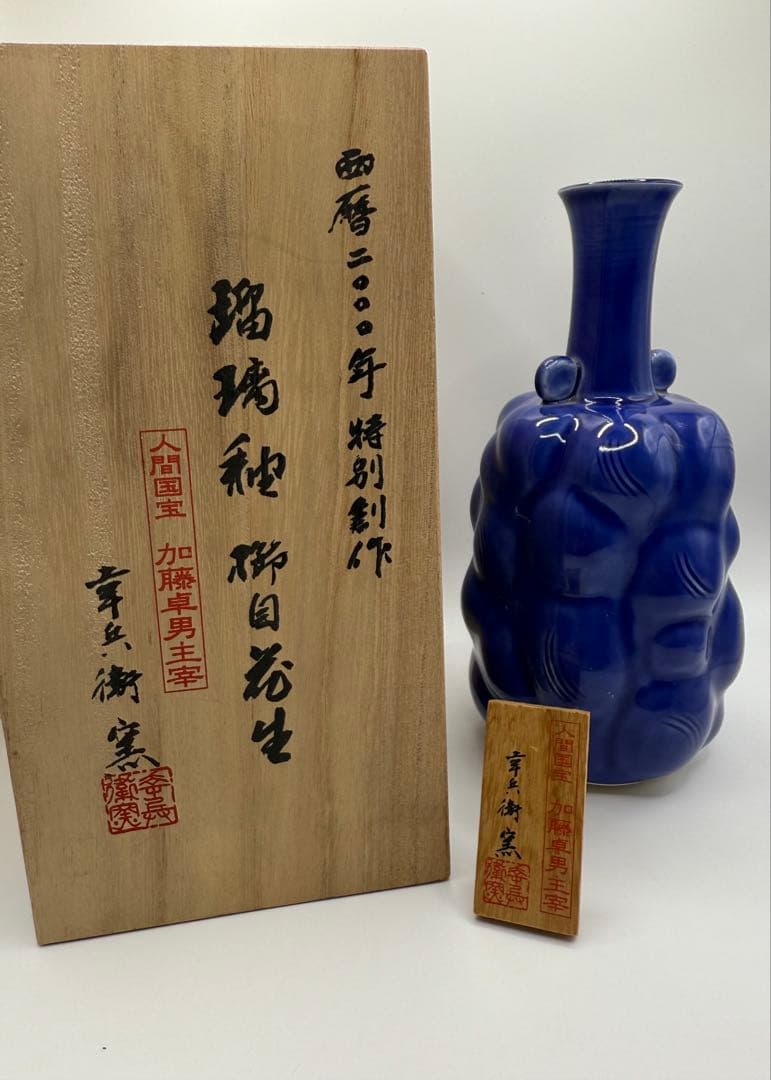 西暦二〇〇〇年 特別創作
瑠璃釉 櫛目花生
人間国宝 加藤卓男主宰
幸兵衛窯
人間国宝 加藤卓男主宰
幸兵衛窯